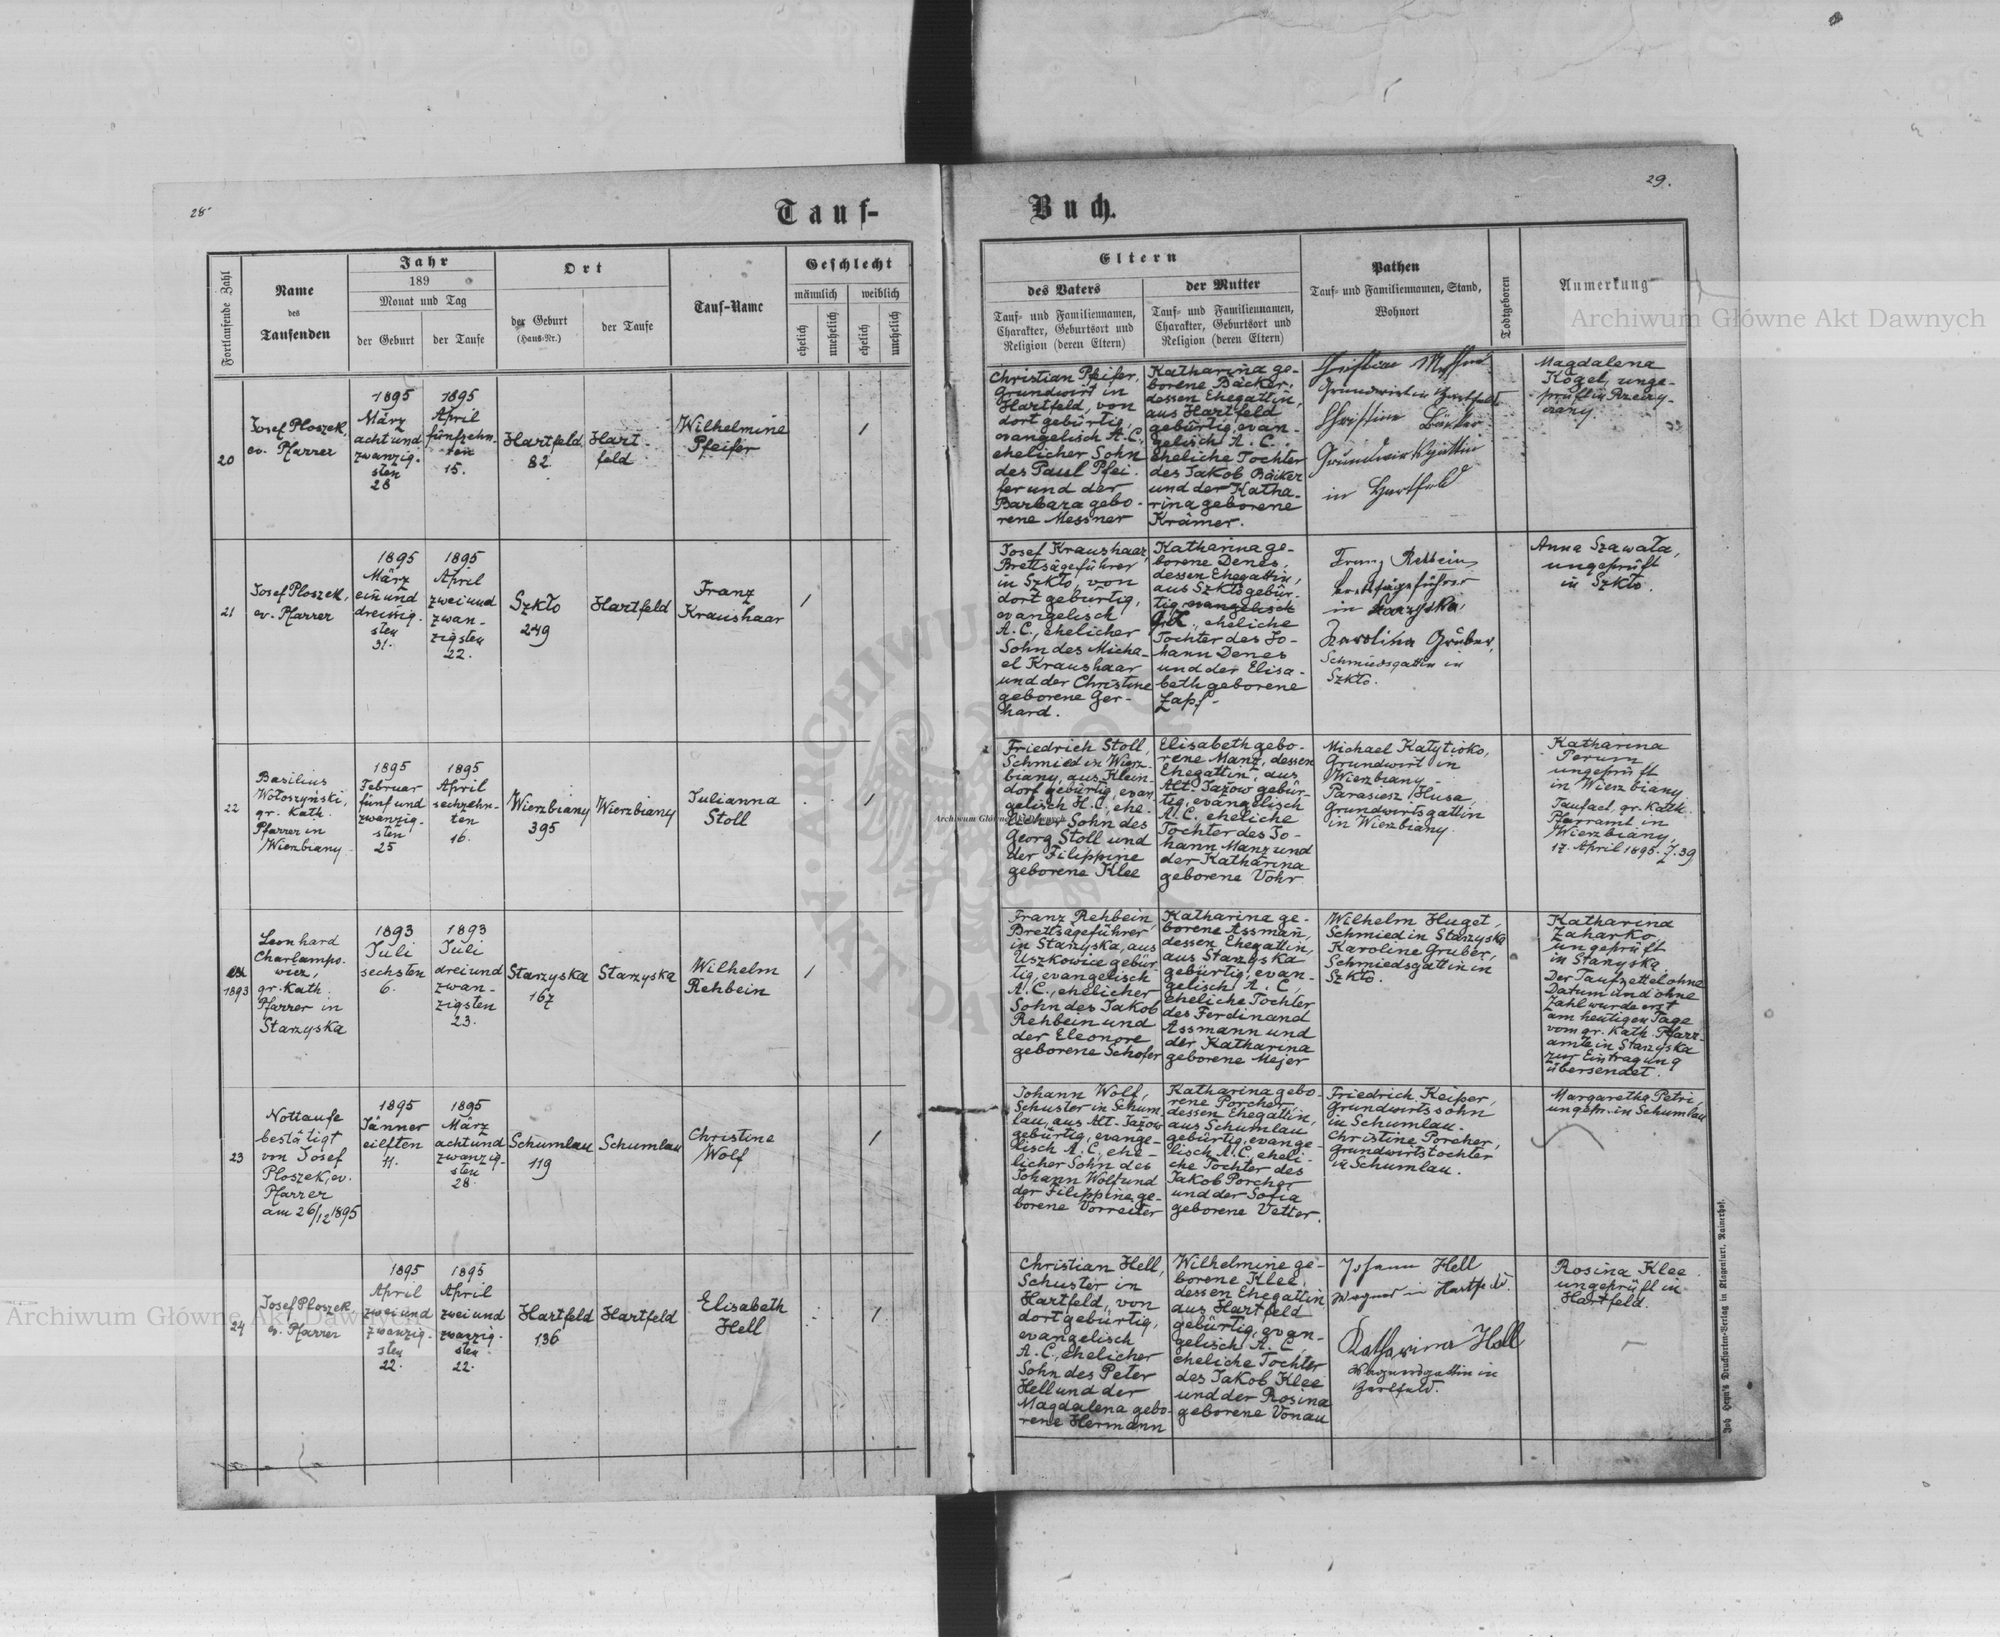 28
29.
Tauf-
Buch.
Fortlaufende Zahl
Name
des
Taufenden
Jahr
189
Monat und Tag
der Geburt
der Taufe
Ort
der Geburt
(Haus-Nr.)
der Taufe
Tauf-Name
Geschlecht
männlich
weiblich
ehelich
unehelich
ehelich
unehelich
Eltern
des Vaters
Tauf- und Familiennamen,
Charakter, Geburtsort und
Religion (deren Eltern)
der Mutter
Tauf- und Familiennamen,
Charakter, Geburtsort und
Religion (deren Eltern)
Pathen
Tauf- und Familiennamen, Stand,
Wohnort
Todtgeboren
Anmerkung
20
Josef Ploszek,
ev. Pfarrer
1895
März
acht und
zwanzig-
sten
28
1895
April
fünfzehn-
ten
15.
Hartfeld
82
Hart-
feld
Wilhelmine
Pfeifer
1
Christian Pfeifer,
Grundwirt in
Hartfeld, von
dort gebürtig,
evangelisch A.C.,
ehelicher Sohn
des Paul Pfei-
fer und der
Barbara gebo-
rene Messner
Katharina ge-
borene Bäcker,
dessen Ehegattin,
aus Hartfeld
gebürtig, evan-
gelisch A. C.
eheliche Tochter
des Jakob Bäcker
und der Katha-
rina geborene
Krämer.
Grundwirt in Hartfeld
Christine Bäcker
Grundwirtsgattin
in Hartfeld
Magdalena
Kogel, unge-
prüft in
21
Josef Ploszek,
ev. Pfarrer
1895
März
ein und
dreissig-
sten
31.
1895
April
zwei und
zwan-
zigsten
22.
Szkło
249
Hartfeld
Franz
Kraushaar
1
Josef Kraushaar,
Brettsägeführer
in Szkło, von
dort gebürtig,
evangelisch
A.C., ehelicher
Sohn des Micha-
el Kraushaar
und der Christine
geborene Ger-
hard.
Katharina ge-
borene Denes,
dessen Ehegattin,
aus Szkło gebür-
tig, evangelisch
eheliche
Tochter des Jo-
hann Denes
und der Elisa-
beth geborene
Zapf.
Franz Rehbein
Brettsägeführer
in Starzyska,
Karolina Gruber,
Schmiedsgattin in
Szkło.
Anna Szawała,
ungeprüft
in Szkło.
22
Basilius
Wołoszyński,
gr. Kath.
Pfarrer in
Wierzbiany
1895
Februar
fünf und
zwanzig-
sten
25
1895
April
sechzehn-
ten
16.
Wierzbiany
395
Wierzbiany
Julianna
Stoll
1
Friedrich Stoll,
Schmied in Wierz-
biany, aus Klein-
dorf gebürtig, evan-
gelisch H.C., ehe-
licher Sohn des
Georg Stoll und
der Filippine
geborene Klee
Elisabeth gebo-
rene Manz, dessen
Ehegattin, aus
Alt-Jażow gebür-
tig, evangelisch
A.C. eheliche
Tochter des Jo-
hann Manz und
der Katharina
geborene Vohr
Michael Katytioko,
Grundwirt in
Wierzbiany
Parasiesz Husa,
Grundwirtsgattin
in Wierzbiany.
Katharina
Perum
ungeprüft
in Wierzbiany
gr. Kath.
Pfarramt in
Wierzbiany
17. April 1895. Z. 39
1893
Leonhard
Charlampo-
wicz,
gr. Kath.
Pfarrer in
Starzyska
1893
Juli
sechsten
6.
1893
Juli
drei und
zwan-
zigsten
23.
Starzyska
167
Starzyska
Wilhelm
Rehbein
1
Franz Rehbein,
Brettsägeführer
in Starzyska, aus
Uszkowice gebür-
tig, evangelisch
A.C., ehelicher
Sohn des Jakob
Rehbein und
der Eleonore
geborene Schofer
Katharina ge-
borene Assmann,
dessen Ehegattin,
aus Starzyska
gebürtig, evan-
gelisch A. C.,
eheliche Tochter
des Ferdinand
Assmann und
der Katharina
geborene Mejer
Wilhelm Huget,
Schmied in Starzyska
Karoline Gruber,
Schmiedsgattin in
Szkło.
Katharina
Zaharko,
ungeprüft
in Starzyska
Der Taufzettel ohne
Datum und ohne
Zahl wurde erst
am heutigen Tage
vom gr. Kath. Pfarr-
amte in Starzyska
zur Eintragung
übersendet.
23
Nottaufe
bestätigt
von Josef
Ploszek, ev.
Pfarrer
am 26/12 1895
1895
Jänner
eilften
11.
1895
März
acht und
zwanzig-
sten
28.
Schumlau
119
Schumlau
Christine
Wolf
1
Johann Wolf,
Schuster in Schum-
lau, aus Alt-Jażow
gebürtig, evange-
lisch A.C., ehe-
licher Sohn des
Johann Wolf und
der Filippine, ge-
borene Vorreiter
Katharina gebo-
rene Porcher,
dessen Ehegattin,
aus Schumlau
gebürtig, evange-
lisch A.C., eheli-
che Tochter des
Jakob Porcher
und der Sofia
geborene Vetter.
Friedrich Keiper,
Grundwirtssohn
in Schumlau.
Christine Porcher,
Grundwirtstochter
in Schumlau.
Margaretha Petri,
ungepr. in Schumlau
24
Josef Ploszek
ev. Pfarrer
1895
April
zwei und
zwanzig-
sten
22.
1895
April
zwei und
zwanzig-
sten
22.
Hartfeld
136
Hartfeld
Elisabeth
Hell
1
Christian Hell,
Schuster in
Hartfeld, von
dort gebürtig,
evangelisch
A.C., ehelicher
Sohn des Peter
Hell und der
Magdalena gebo-
rene Hermann
Wilhelmine ge-
borene Klee,
dessen Ehegattin
aus Hartfeld
gebürtig, evan-
gelisch A. C.
eheliche Tochter
des Jakob Klee
und der Rosina
geborene Vonau
Johann Hell
Wagner in Hartfeld.
Katharina Hell
Wagnersgattin in
Hartfeld.
Rosina Klee
ungeprüft in
Hartfeld.
Joh. Heyn's Drucksorten-Verlag in Klagenfurt, Rainerhof.
Archiwum Główne Akt Dawnych
Archiwum Główne Akt Dawnych
Archiwum Główne Akt Dawnych